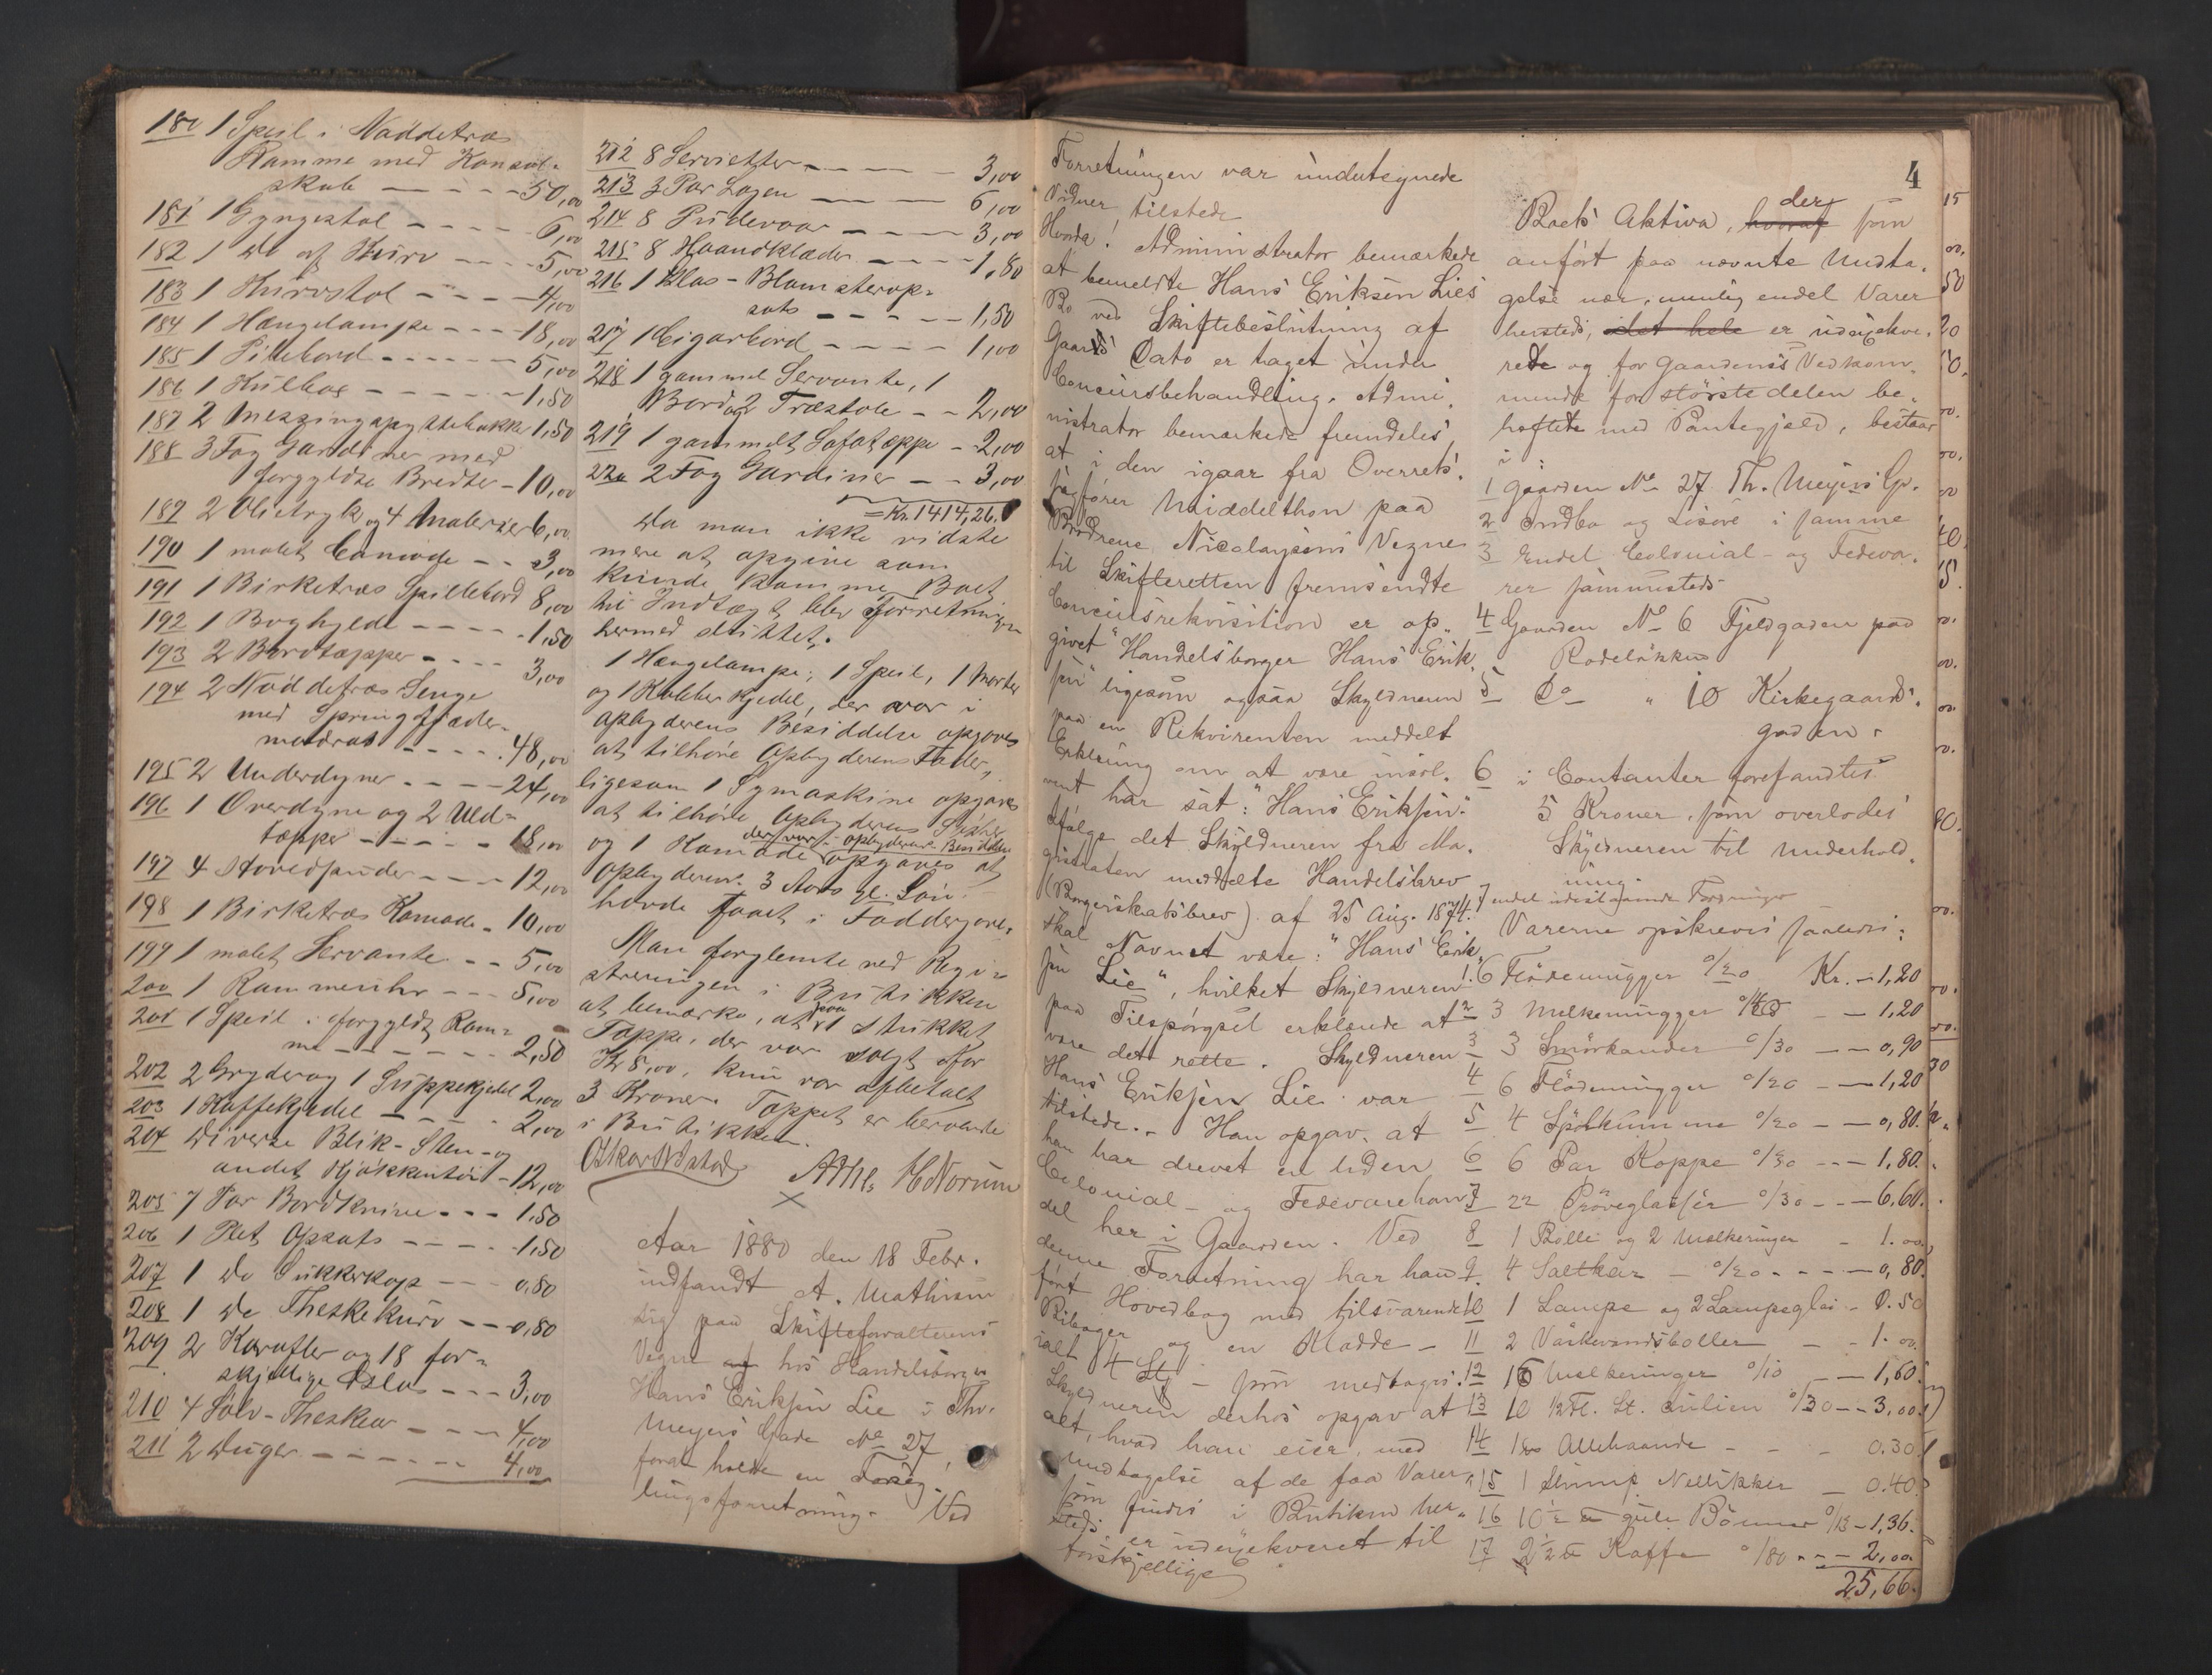 180 1 Speil i Nøddetræs
Ramme med Konsol-
skab - - - - 50,00
181 1 Gyngestol - - - - 6,00
182 1 do af Kurv - - - 5,00
183 1 Kurvstol - - - 4,00
184 1 Hængelampe - - - 18,00
185 1 Pillebord - - - - - 5,00
186 1 - - - - - 1,50
187 2 Messingspyttebakker 1,50
188 3 Fag Gardiner med
forgyldte Bredter - 10,00
189 2 Olietryk og 4 Malerier 6,00
190 1 malet Comode - - 3,00
191 1 Birketræs Spillebord 8,00
192 1 Boghylde - - - - 1,50
193 2 Bordtæpper - - - - 3,00
194 2 Nøddetræs Senge
med Springfjæder-
madras - - - - 48,00
195 2 Underdyner - - - - 24,00
196 1 Overdyne og 2 Uld-
tæpper - - - - - 18,00
197 4 Hovedpuder - - - 12,00
198 1 Birketræs Komode - 10,00
199 1 malet Servante - - 5,00
200 1 Rammeuhr - - - 5,00
201 1 Speil i forgyldt Ram-
me - - - - - - 2,50
202 2 Gryder og 1 Suppekjedel 2,00
203 1 Kaffekjedel - - - - 2,00
204 Diverse Blik- Sten- og
andet Kjøkkentøi - 12,00
205 7 Par Bordknive - - - 1,50
206 1 Plet Opsats - - - - 1,50
207 1 do Sukkerkop - - - 0,80
208 1 do Theskekurv - - 0,80
209 2 Karafler og 18 for-
skjellige Glas - - - 3,00
210 4 Sølv-Theskeer - - - 4,00
211 2 Duger - - - - - - 4,00
212 8 Servietter - - - - - 3,00
213 3 Par Lagen - - - - 6,00
214 8 Pudevaar - - - - 3,00
215 8 Haandklæder - - - - 1,80
216 1 Glas-Blomsterop-
sats - - - - - 1,50
217 1 Cigarbord - - - - 1,00
218 1 gammel Servante, 1
Bord og 2 Træstole - - 2,00
219 1 gammelt Sofatæppe - 2,00
220 2 Fag Gardiner - - 3,00
= Kr. 1414,26.
Da man ikke vidste
mere at opgive som
kunde komme Boet
til Indtægt blev Forretningen
hermed sluttet.
1 Hængelampe, 1 Speil, 1 Morter
og 1 Kobberkjedel, der var i
Opbyderens Besiddelse opgaves
at tilhøre Opbyderens Fader,
ligesom 1 Symaskine opgaves
at tilhøre Opbyderens Søster
der var i Opbyderens Besiddelse
og 1 Komode opgaves at
Opbyderens 3 Aars gl. Søn
havde faaet i Faddergave.
Man forglemte ved Regi-
streringen i Butikken
at bemærke, at paa 1 Stukket
Tæppe, der var solgt for
Kr 8,00, kun var afbetalt
3 Kroner. Tæppet er beroende
i Butikken.
Oskar
A.Th. H Norum
Aar 1880 den 18 Febr.
indfandt A. Mathisen
sig paa Skifteforvalterens
Vegne hos Handelsborger
Hans Eriksen Lie i Thv.
Meyers Gade No 27,
foratt holde en Forseg-
lingsforretning. Ved
4
Forretningen var undertegnede
Vidner tilstede
Hvorda! Administrator bemærkede
at bemeldte Hans Eriksen Lies
Bo ved Skiftebeslutning af
Gaars Dato er taget under
Concursbehandling. Admi-
nistrator bemærkede fremdeles,
at i den igaar fra Overrets-
sagfører Middelthon paa
Brødrene Nicolaysens Vegne
til Skifteretten fremsendte
Concursrekvisition er op-
givet "Handelsborger Hans Erik-
sen" ligesom ogsaa Skyldneren
paa en Rekvirenten meddelt
Erklæring om at være insol-
vent har sat: "Hans Eriksen".
Ifølge det Skyldneren fra Ma-
gistraten meddelte Handelsbrev
(Borgerskabsbrev) af 25 Aug. 1874
skal Navnet være: "Hans Erik-
sen Lie", hvilket Skyldneren
paa Tilspørgsel erklærede at
være det rette. Skyldneren
Hans Eriksen Lie var
tilstede. - Han opgav, at
han har drevet en liden
Colonial- og Fedevarehan-
del her i Gaarden. Ved
denne Forretning har han
ført Hovedbog med tilsvarende
Bibøger og en Kladde -
ialt 4 St - som medtoges.
Skyldneren derhos opgav at
alt, hvad han eier, med
Undtagelse af de faa Varer,
som findes i Butiken her-
steds, er udexekveret til
forskjellige
Boets Aktiva, der hvoraf som
anført paa nævnte Undta-
gelse nær, nemlig endel Varer
hersteds, det hele er udexekve-
rede og for Gaardenes Vedkom-
mende for størstedelen be-
heftede med Pantegjeld, bestaar
i:
1 Gaarden No 27 Th. Meyers Gd.
2 Indbo og Løsøre i samme
3 Endel Colonial- og Fedeva-
rer sammesteds
4 Gaarden No 6 Fjeldgaden paa
Rodeløkken
5 Do " 10 Kirkegaards-
gaden.
6 i Contanter forefandtes
5 Kroner, som overlodes
Skyldneren til Underhold-
ning.
7 endel udestaaende Fordringer
Varerne opskreves saaledes:
1. 6 Flødemugger o/20 Kr. - 1,20
2 3 Melkemugger o/40 - - 1,20
3 3 Smørkander o/30 - - 0,90
4 6 Flødemugger o/20 - - 1,20
5 4 Spølkumme o/20 - - 0,80.
6 6 Par Koppe o/30 - - - 1,80.
7 22 Prøveglasser o/30 - - - 6,60.
8 1 Bolle og 2 Melkeringer - 1.00.
9. 4 Saltkar - o/20 - - - - 0,80.
10 1 Lampe og 2 Lampeglas - 0.50
11 2 Vaskevandsboller - - 1.00
12 16 Melkeringer o/10 - - 1,60.
13 10 1/2 Fl. St. Julien o/30 - - 3,00.
14 Allehaande - - - 0.30
15 1 Nellikker - 0.40
16 10 1/2 ℔ gule Bønner o/13 - 1,36.
17 2 1/2 ℔ Kaffe o/80 - - - 2,00
25,66.